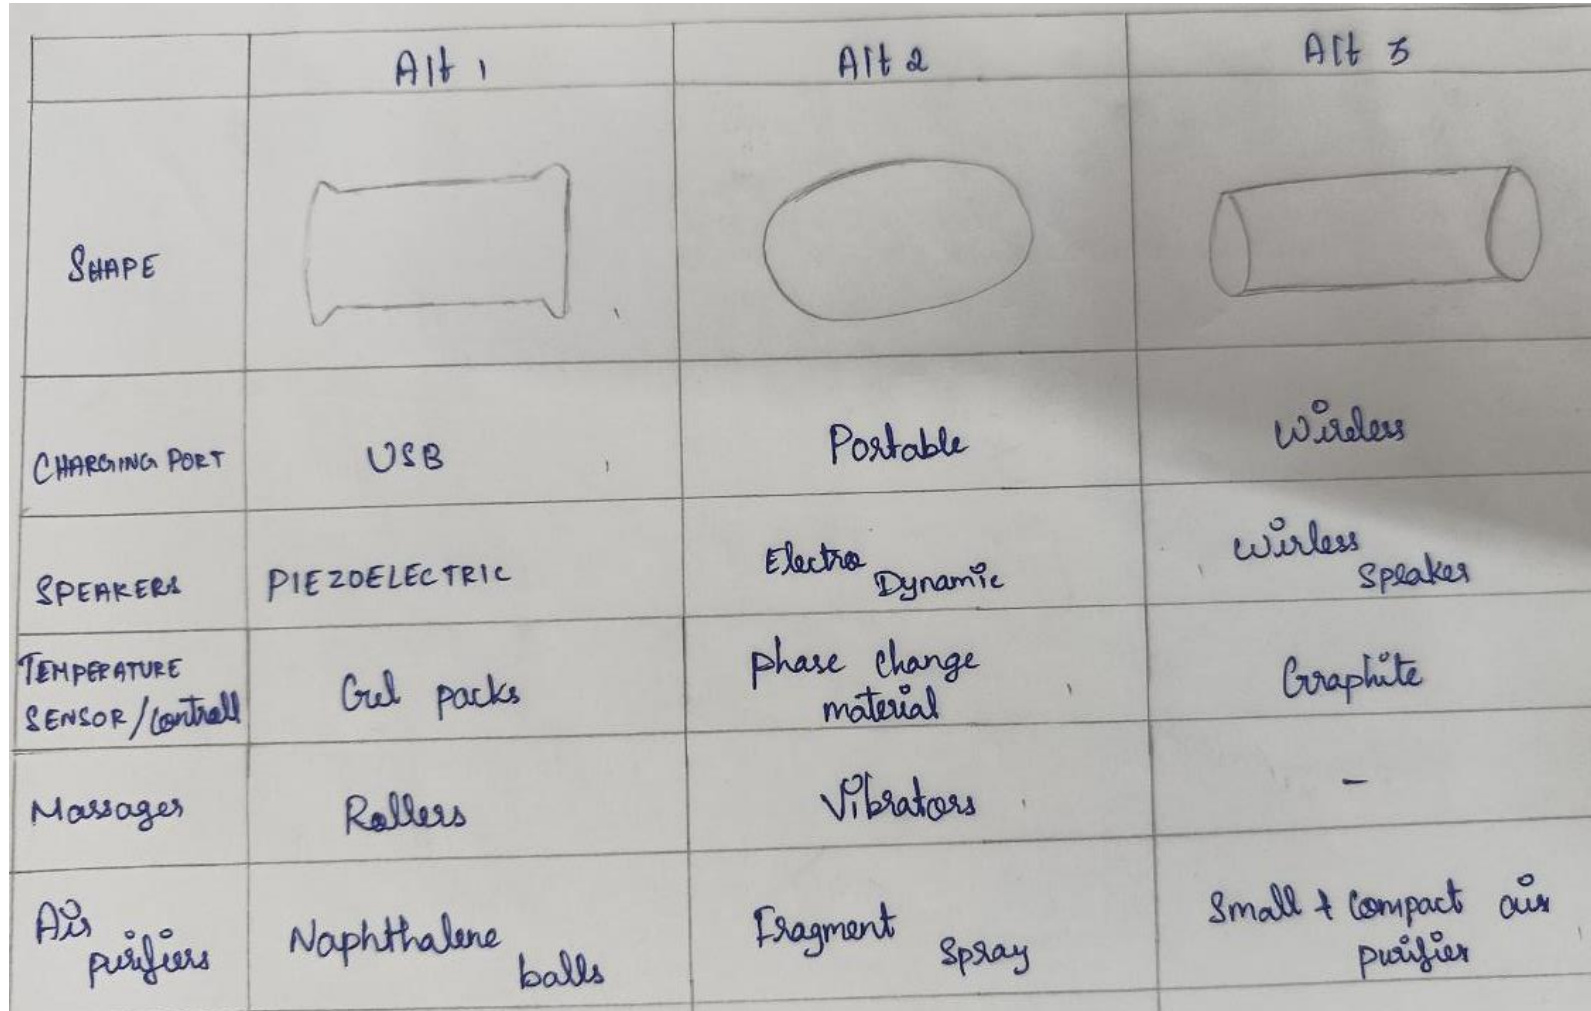 Alt 1 Alt 2 Alt 3
SHAPE
CHARGING PORT USB Portable Wireless
SPEAKERS PIEZOELECTRIC Electro Dynamic Wirless Speaker
TEMPERATURE
SENSOR/Controll Gel packs phase change material Graphite
Massager Rollers Vibrators -
Air purifiers Naphthalene balls Fragment Spray Small & compact air purifier